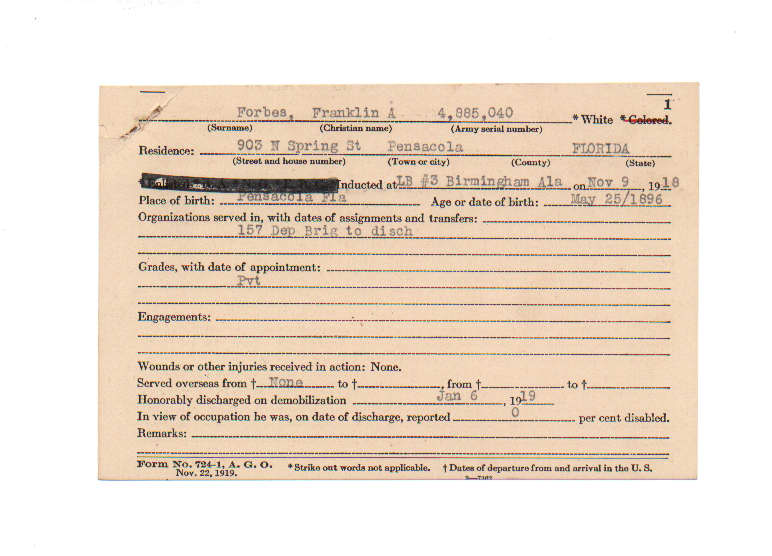 1
Forbes, Franklin A 4,885,040 * White * Colored.
(Surname) (Christian name) (Army serial number)
Residence: 903 N Spring St Pensacola FLORIDA
(Street and house number) (Town or city) (County) (State)
Inducted at LB #3 Birmingham Ala on Nov 9, 1918
Place of birth: Pensacola Fla Age or date of birth: May 25/1896
Organizations served in, with dates of assignments and transfers:
157 Dep Brig to disch
Grades, with date of appointment:
Pvt
Engagements:
Wounds or other injuries received in action: None.
Served overseas from † None to †, from † to †
Honorably discharged on demobilization Jan 6, 1919
In view of occupation he was, on date of discharge, reported 0 per cent disabled.
Remarks:
Form No. 724-1, A. G. O. * Strike out words not applicable. † Dates of departure from and arrival in the U. S.
Nov. 22, 1919.